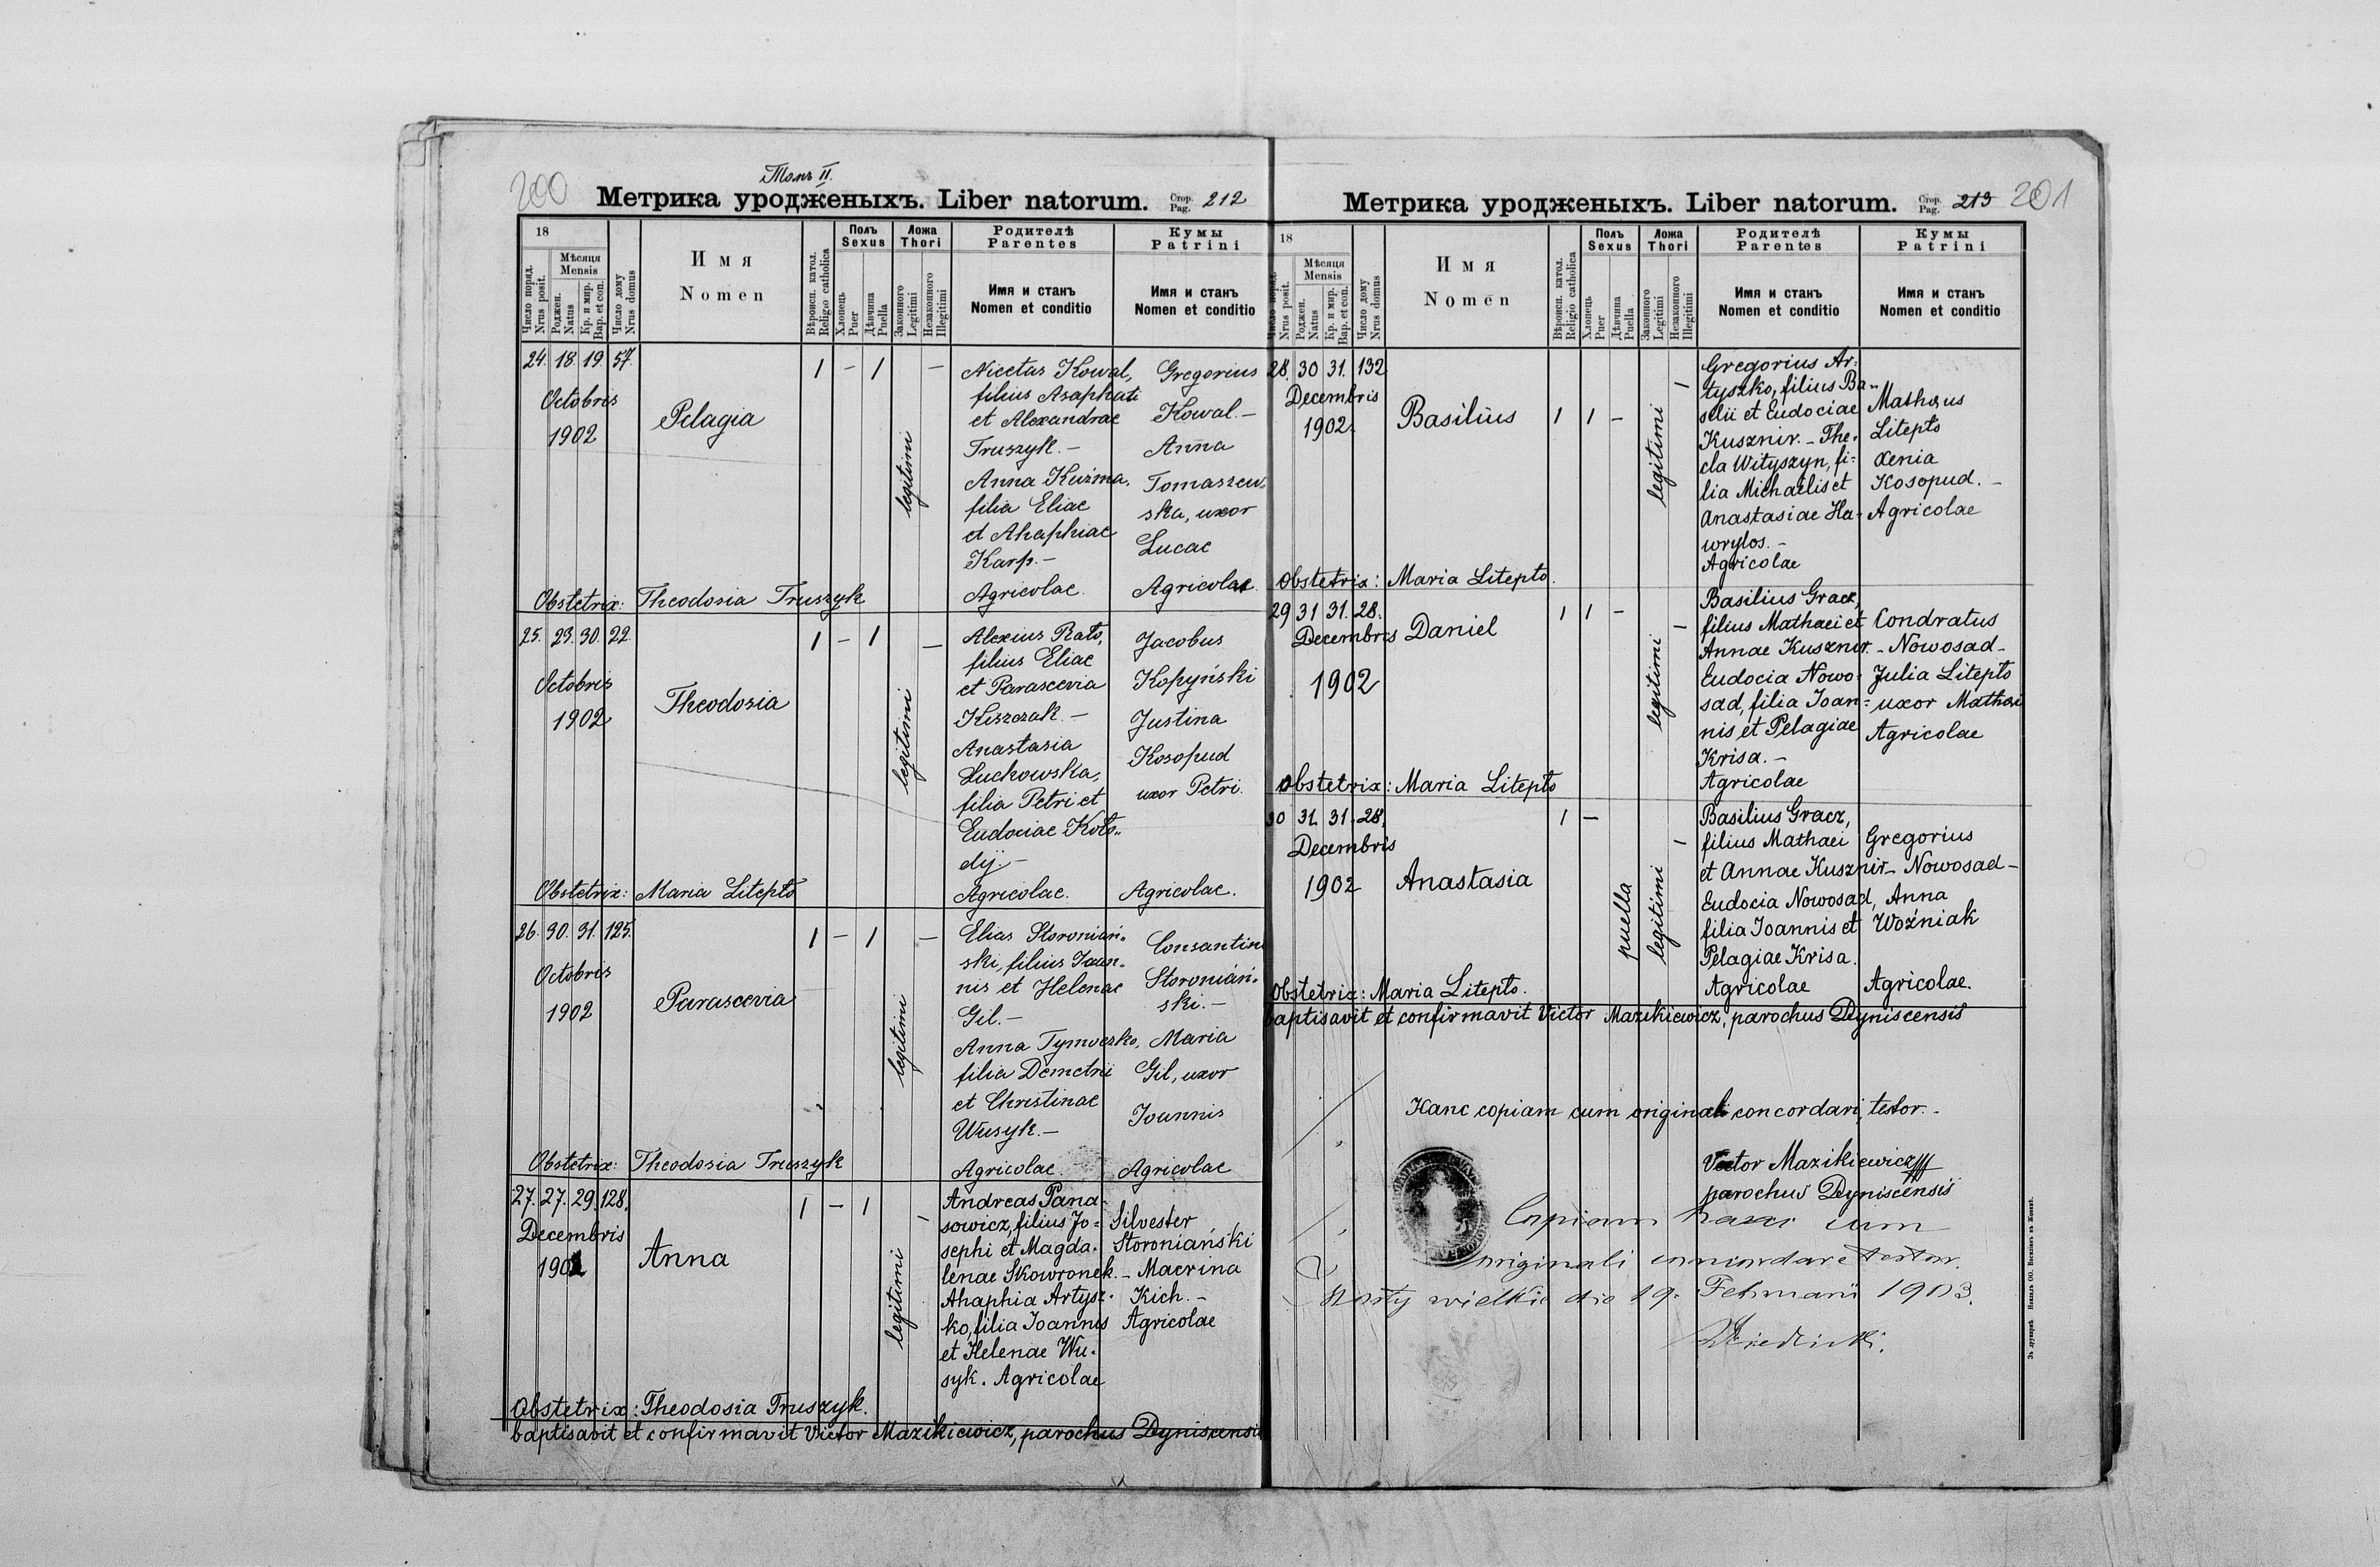 200
Томъ II.
Метрика уродженыхъ. Liber natorum. Стор. Pag. 212
18
Число поряд. Nrus posit.
Мѣсяця Mensis
Роджен. Natus
Кр. и мир. Bap. et con.
Число дому Nrus domus
Имя
Nomen
Вѣроисп. катол. Religio catholica
Полъ Sexus
Хлопець Puer
Дѣвчина Puella
Ложа Thori
Законного Legitimi
Незаконного Illegitimi
Родителѣ
Parentes
Имя и станъ
Nomen et conditio
Кумы
Patrini
Имя и станъ
Nomen et conditio
24. 18. 19. 57.
Octobris
1902
Pelagia
1 – 1 –
legitimi
Nicetas Kowal,
filius Asaphati
et Alexandrae
Truszyk. –
Anna Kuźma,
filia Eliae
et Ahaphiae
Karp. –
Agricolae.
Gregorius
Kowal. –
Anna
Tomaszew-
ska, uxor
Lucae
Agricolae.
Obstetrix: Theodosia Truszyk
25. 23. 30. 22.
Octobris
1902
Theodosia
1 – 1 –
legitimi
Alexius Rato,
filius Eliae
et Parascevia
Kiszczak. –
Anastasia
Łuchowska,
filia Petri et
Eudociae Koło-
dij. –
Agricolae.
Jacobus
Kopyński
Justina
Kosopud
uxor Petri.
Agricolae.
Obstetrix: Maria Litepto
26. 30. 31. 125.
Octobris
1902
Parascevia
1 – 1 –
legitimi
Elias Storoniań-
ski, filius Joan-
nis et Helenae
Gil. –
Anna Tymoczko,
filia Demetrii
et Christinae
Wusyk. –
Agricolae.
Consantin
Storoniań-
ski. –
Maria
Gil, uxor
Joannis
Agricolae
Obstetrix: Theodosia Truszyk
27. 27. 29. 128.
Decembris
1902
Anna
1 – 1 –
legitimi
Andreas Pana-
sowicz, filius Jo-
sephi et Magda-
lenae Skowronek. –
Ahaphia Artysz-
ko, filia Joannis
et Helenae Wu-
syk. Agricolae
Silvester
Storoniański
Macrina
Kich. –
Agricolae
Obstetrix: Theodosia Truszyk.
baptisavit et confirmavit Victor Mazikiewicz, parochus Dyniscensis
Метрика уродженыхъ. Liber natorum. Стор. Pag. 213
201
18
Число поряд. Nrus posit.
Мѣсяця Mensis
Роджен. Natus
Кр. и мир. Bap. et con.
Число дому Nrus domus
Имя
Nomen
Вѣроисп. катол. Religio catholica
Полъ Sexus
Хлопець Puer
Дѣвчина Puella
Ложа Thori
Законного Legitimi
Незаконного Illegitimi
Родителѣ
Parentes
Имя и станъ
Nomen et conditio
Кумы
Patrini
Имя и станъ
Nomen et conditio
28. 30 31. 132
Decembris
1902.
Basilius
1 1 – –
legitimi
Gregorius Ar-
tyszko, filius Ba-
silii et Eudociae
Kusznir. – The-
cla Wityszyn, fi-
lia Michaelis et
Anastasiae Ha-
wrylos. –
Agricolae
Mathaeus
Litepto
Xenia
Kosopud. –
Agricolae
Obstetrix: Maria Litepto.
29 31 31. 28.
Decembris
1902
Daniel
1 1 – –
legitimi
Basilius Gracz,
filius Mathaei et
Annae Kusznir. –
Eudocia Nowo-
sad, filia Joan-
nis et Pelagiae
Krisa. –
Agricolae
Condratus
Nowosad –
Julia Litepto
uxor Mathaei
Agricolae
Obstetrix: Maria Litepto
30 31. 31. 28.
Decembris
1902
Anastasia
1 – –
puella
legitimi
Basilius Gracz,
filius Mathaei
et Annae Kusznir –
Eudocia Nowosad,
filia Joannis et
Pelagiae Krisa.
Agricolae
Gregorius
Nowosad –
Anna
Woźniak
Agricolae.
Obstetrix: Maria Litepto.
baptisavit et confirmavit Victor Mazikiewicz, parochus Dyniscensis
Hanc copiam cum originali concordari, testor. –
Victor Mazikiewicz
parochus Dyniscensis
Copiam hanc cum
originali concordare testor.
wielkie die 19. Februarii 1903.
Зъ друкарнѣ Накладъ ОО. Василіянъ въ Жовквѣ.